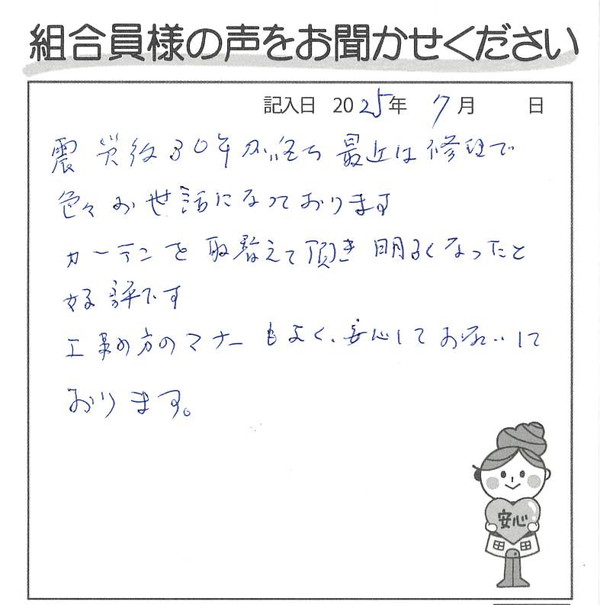 組合員様の声をお聞かせください
記入日 2025年 7月 日
震災後30年が経ち 最近は修理で
色々お世話になっております
カーテンを取替えて頂き 明るくなったと
好評です
工事の方のマナーもよく、安心してお願いして
おります。
安心